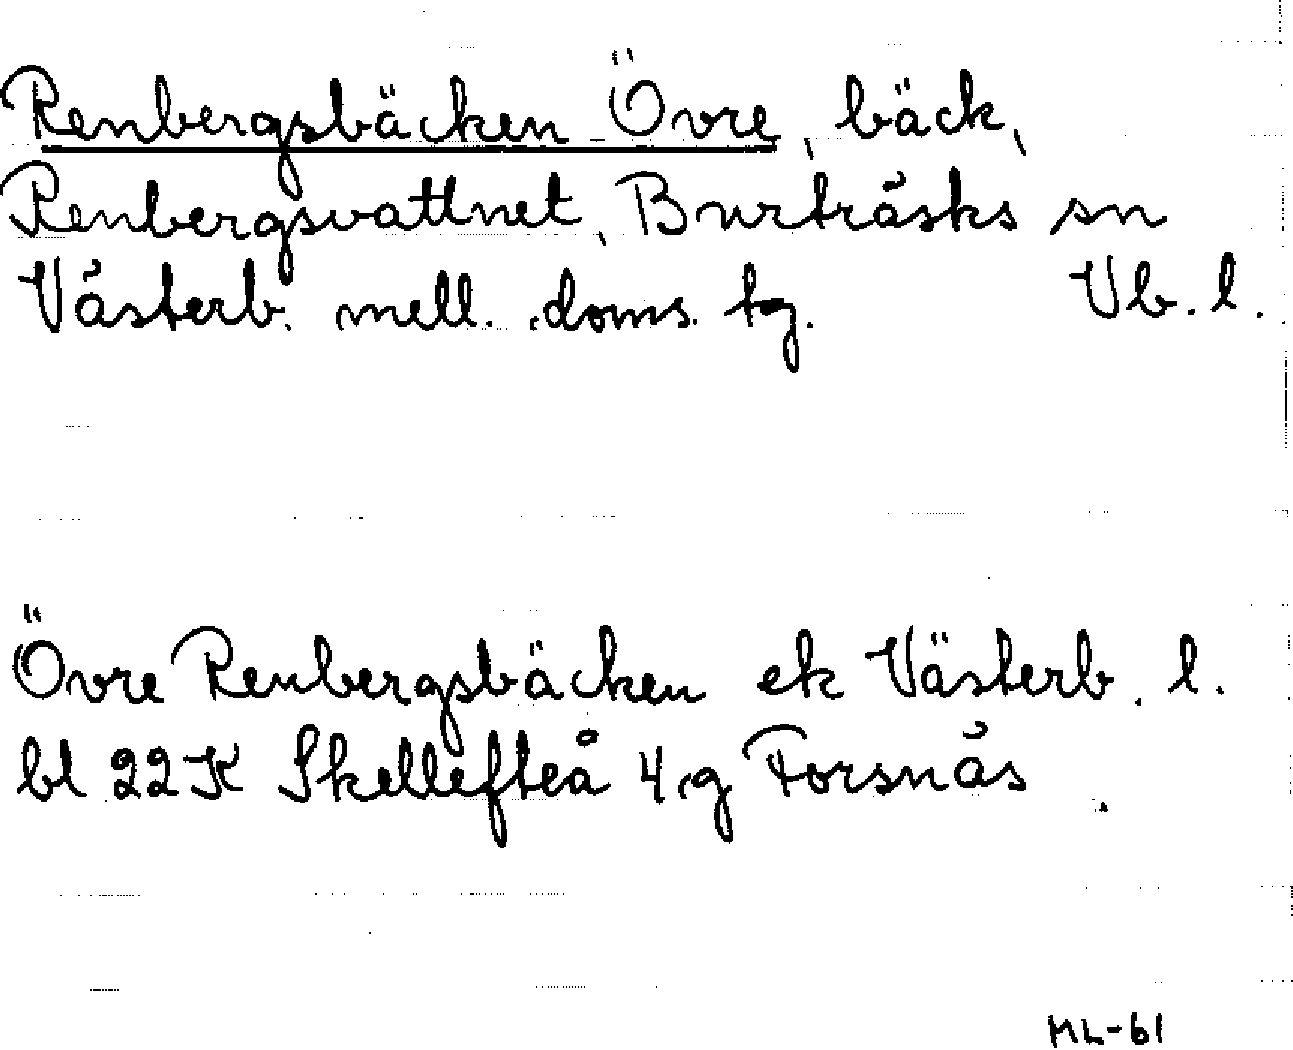 Renbergsbäcken Övre, bäck,
Renbergsvattnet, Burträsks sn
Västerb. mell. doms. tg. Vb. l.
Övre Renbergsbäcken ek Västerb. l.
bl 22K Skellefteå 4g Forsnäs
ML-61